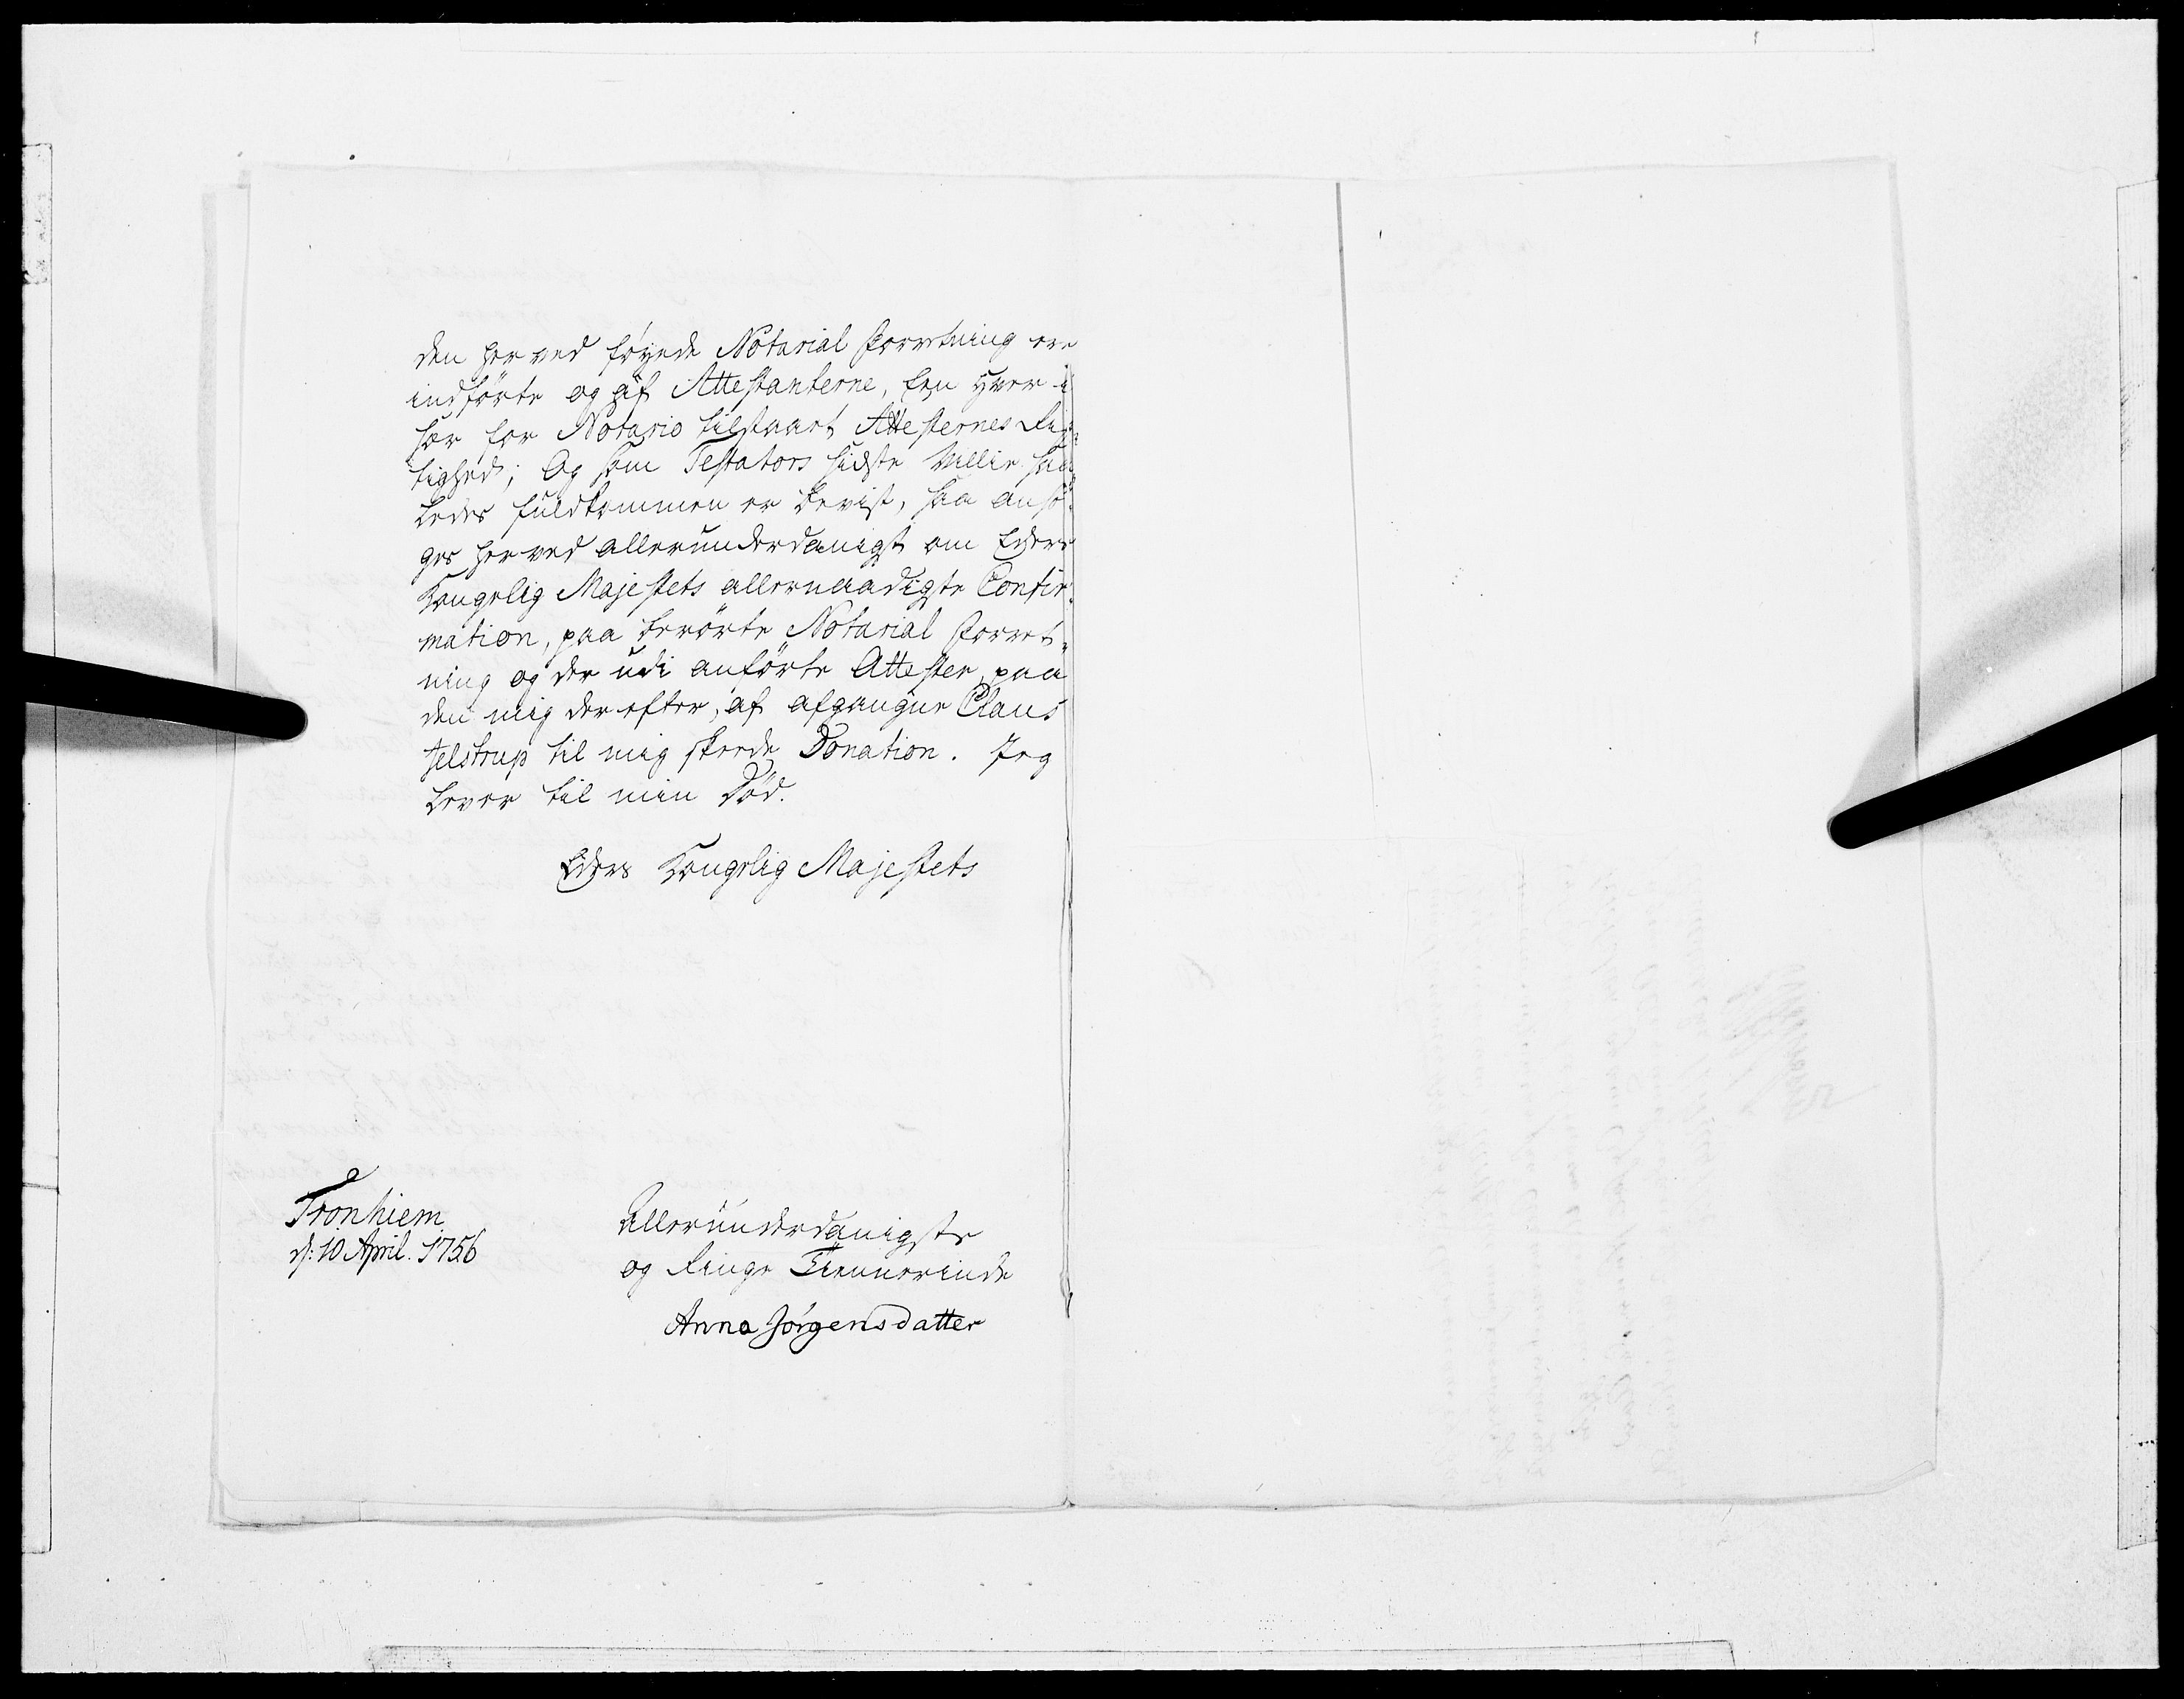 den her ved föyede Notarial Forretning ere
indförte og af Attestanterne, Een hver i
sær for Notario tilstaaet Attesternes Rig-
tighed; Og som Testators sidste Villie saa
ledes fuldkommen er bevist, saa ansö-
ges herved allerunderdanigst om Eders
Kongelig Majestets allernaadigste Confir-
mation, paa berörte Notarial Forret-
ning og der udi anförte Attester, paa
den mig der efter, af afgangne Claus
Jelstrup til mig skeede Donation. Jeg
lever til min Död.
Eders Kongelig Majestets
Tronhiem
d: 10 April. 1756
Allerunderdanigste
og Ringe Tiennerinde
Anna Jörgensdatter